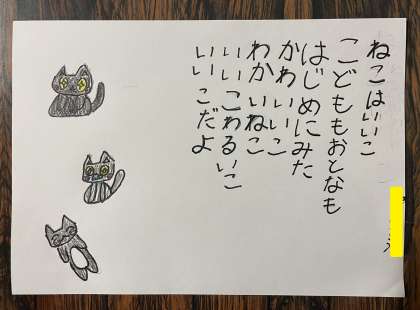 ねこはいいこ
こどももおとなも
はじめにみた
かわいいこ
わかいねこ
いいこわるいこ
いいこだよ